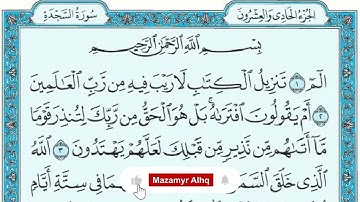 الجُزْءُ الحَادِى وَالعِشْرُونَ
سُورَةُ السَّجْدَةِ
بِسْمِ اللَّهِ الرَّحْمَٰنِ الرَّحِيمِ
الٓمٓ ١ تَنزِيلُ الْكِتَٰبِ لَا رَيْبَ فِيهِ مِن رَّبِّ الْعَٰلَمِينَ
٢ أَمْ يَقُولُونَ افْتَرَىٰهُ ۚ بَلْ هُوَ الْحَقُّ مِن رَّبِّكَ لِتُنذِرَ قَوْمًا
مَّآ أَتَىٰهُم مِّن نَّذِيرٍ مِّن قَبْلِكَ لَعَلَّهُمْ يَهْتَدُونَ ٣ اللَّهُ
الَّذِى خَلَقَ السَّمَ مَا فِى سِتَّةِ أَيَّامٍ
Mazamyr Alhq